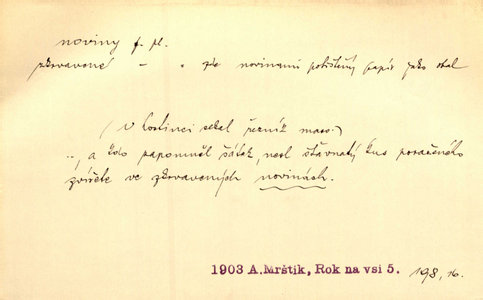 noviny f. pl.
zkrvavené - " zde novinami potištěný papír jako obal
(V hostinci sekal řezník maso.)
.., a kdo zapomněl šátek, nesl šťavnatý kus poraženého
zvířete ve zkrvavených novinách.
1903 A.Mrštík, Rok na vsi 5. 198, 16.